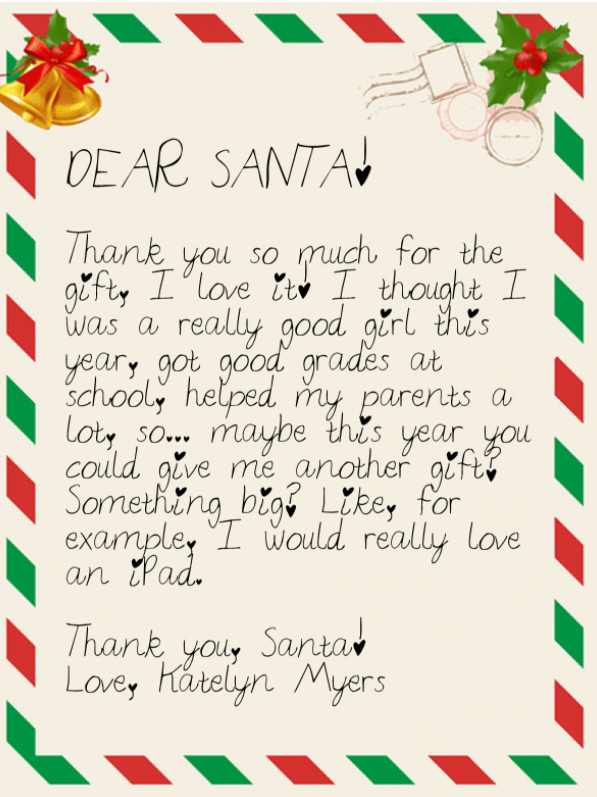 DEAR SANTA!
Thank you so much for the
gift, I love it! I thought I
was a really good girl this
year, got good grades at
school, helped my parents a
lot, so... maybe this year you
could give me another gift?
Something big? Like, for
example, I would really love
an iPad.
Thank you, Santa!
Love, Katelyn Myers